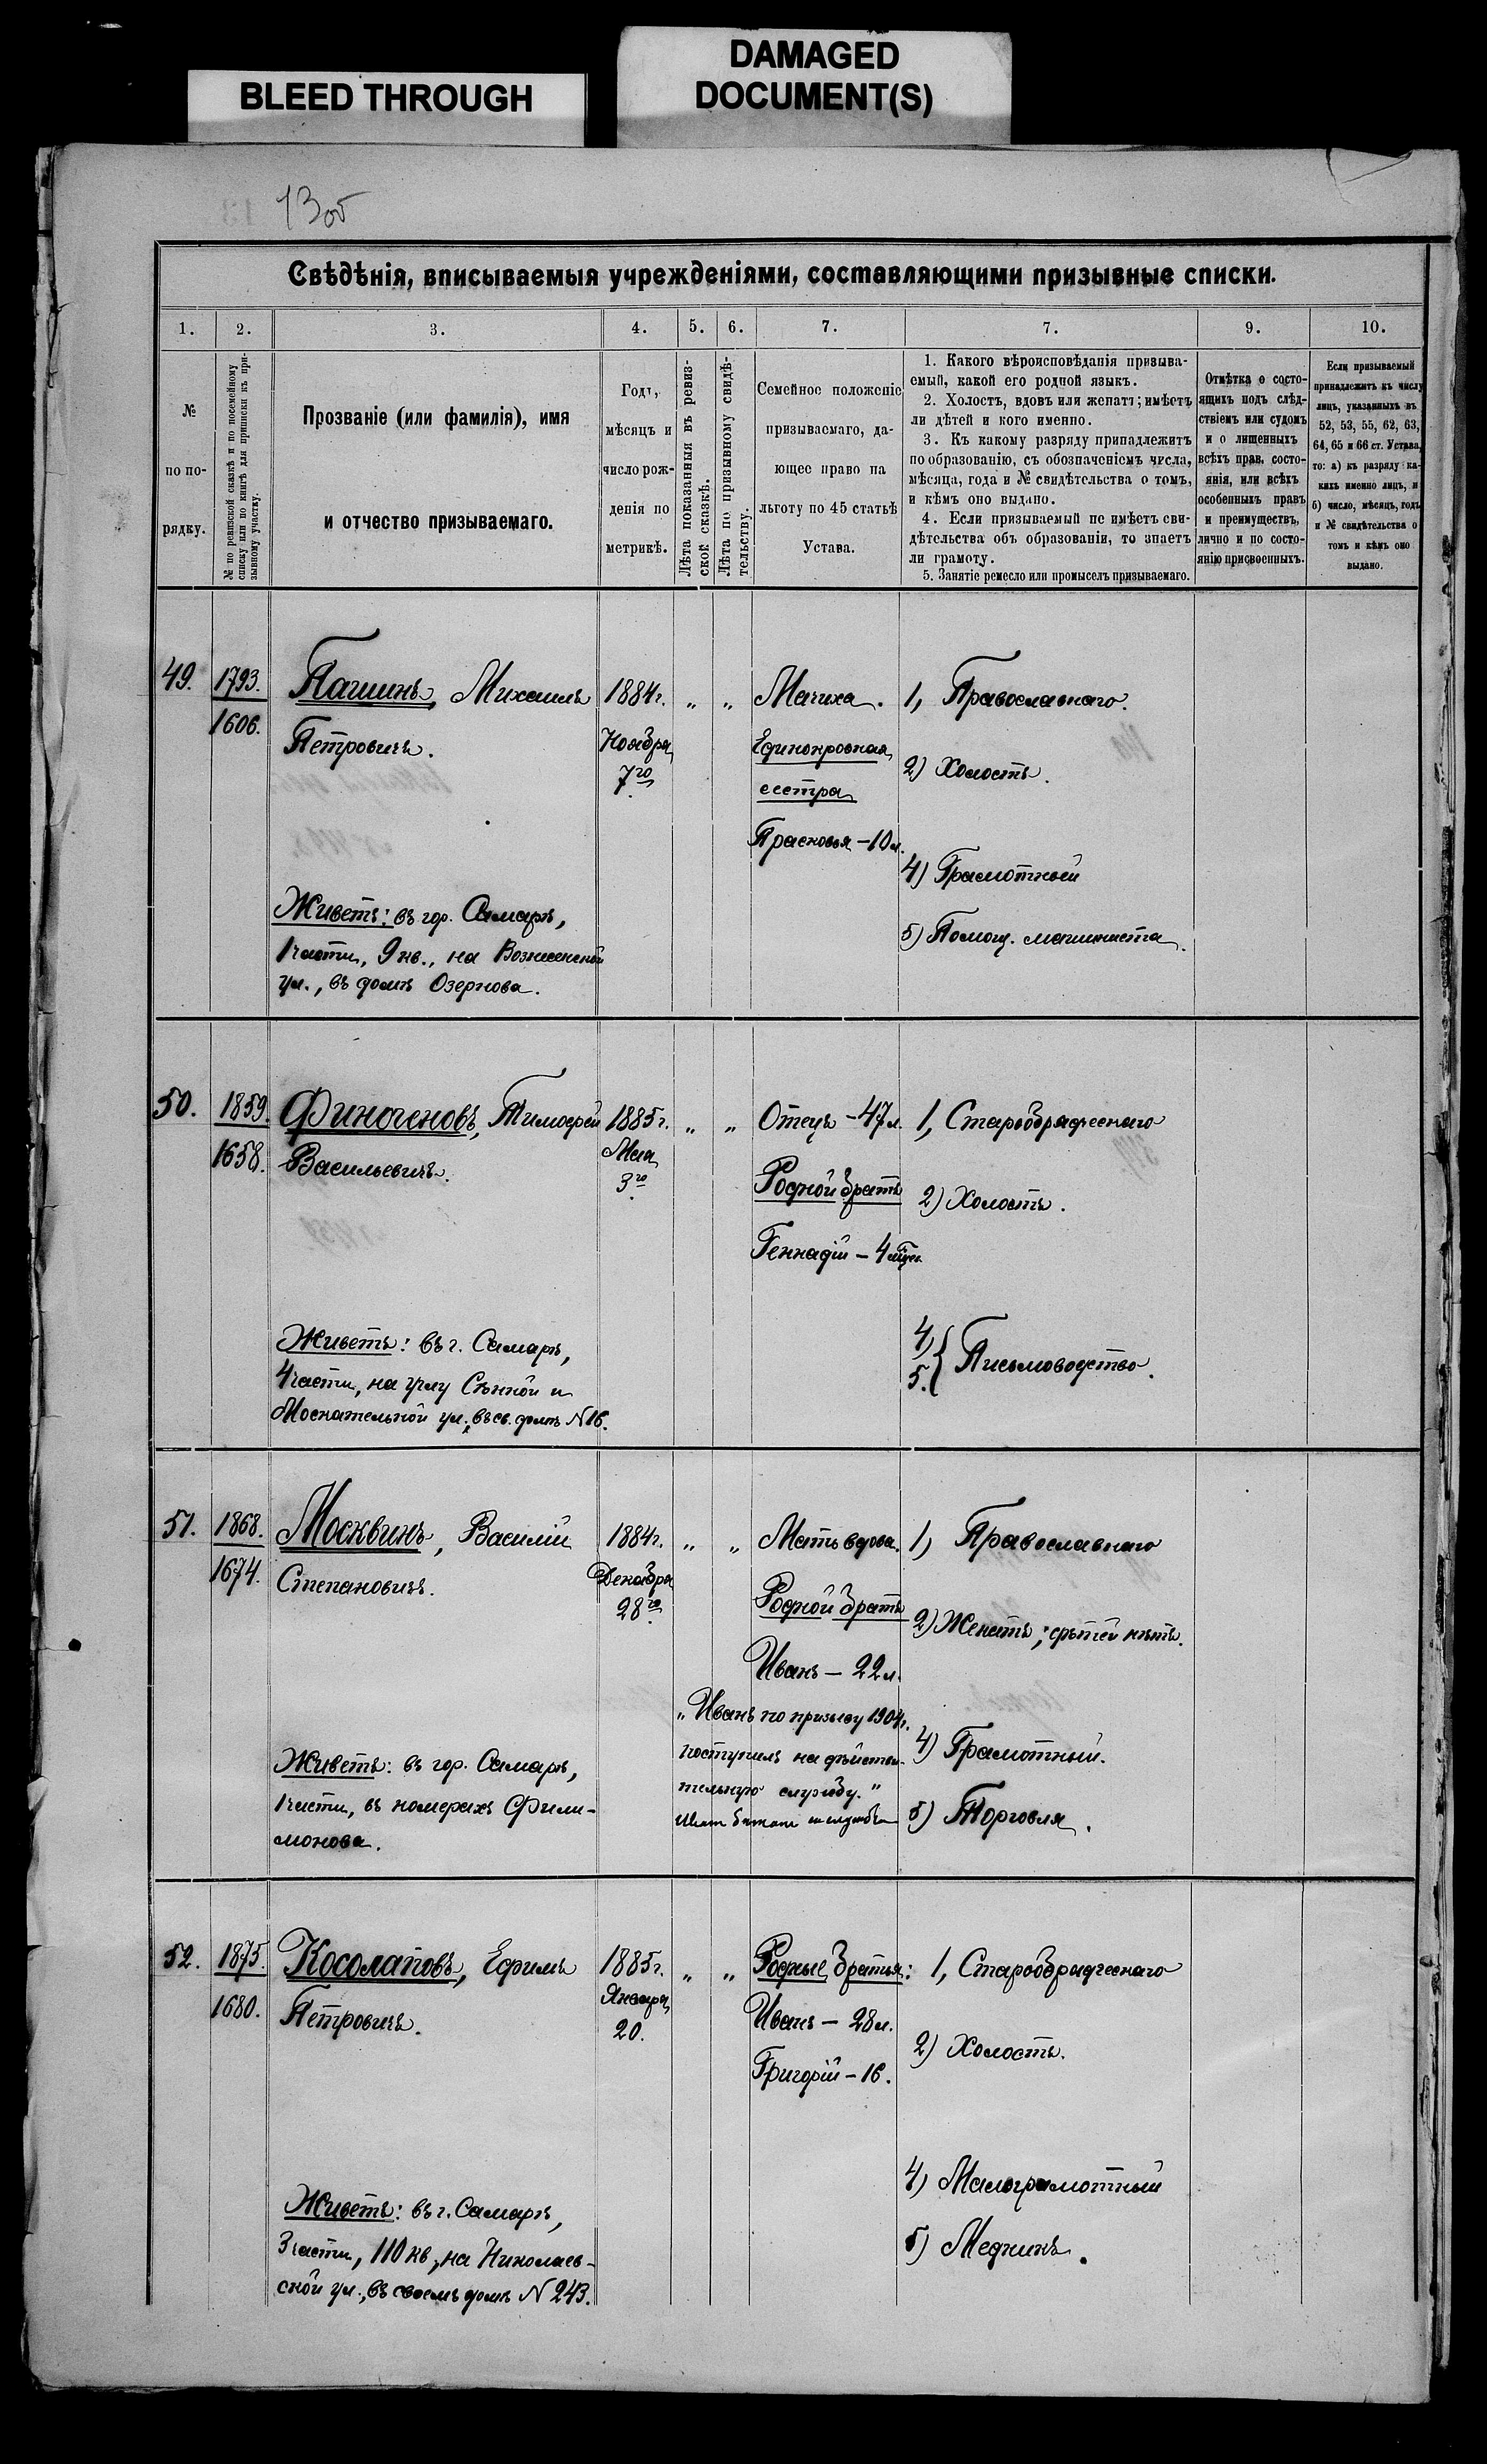 BLEED THROUGH
DAMAGED
DOCUMENT(S)
13об
Свѣдѣнія, вписываемыя учрежденіями, составляющими призывные списки.
1. 2. 3. 4. 5. 6. 7. 7. 9. 10.
№
по по-
рядку.
№ по ревизской сказкѣ и по посемейному
списку или по книгѣ для приписки къ при-
зывному участку.
Прозваніе (или фамилія), имя
и отчество призываемаго.
Годъ,
мѣсяцъ и
число рож-
денія по
метрикѣ.
Лѣта показанныя въ ревиз-
ской сказкѣ.
Лѣта по призывному свидѣ-
тельству.
Семейное положеніе
призываемаго, да-
ющее право на
льготу по 45 статьѣ
Устава.
1. Какого вѣроисповѣданія призыва-
емый, какой его родной языкъ.
2. Холостъ, вдовъ или женатъ; имѣетъ
ли дѣтей и кого именно.
3. Къ какому разряду принадлежитъ
по образованію, съ обозначеніемъ числа,
мѣсяца, года и № свидѣтельства о томъ,
и кѣмъ оно выдано.
4. Если призываемый не имѣетъ сви-
дѣтельства объ образованіи, то знаетъ
ли грамоту.
5. Занятіе ремесло или промыселъ призываемаго.
Отмѣтка о состо-
ящихъ подъ слѣд-
ствіемъ или судомъ
и о лишенныхъ
всѣхъ прав. состо-
янія, или всѣхъ
особенныхъ правъ
и преимуществъ,
лично и по состо-
янію присвоенныхъ.
Если призываемый
принадлежитъ къ числу
лицъ, указанныхъ въ
52, 53, 55, 62, 63,
64, 65 и 66 ст. Устава,
то: а) къ разряду ка-
кихъ именно лицъ, и
б) число, мѣсяцъ, годъ
и № свидѣтельства о
томъ и кѣмъ оно
выдано.
49.
1793.
1606.
Пагшинъ, Михаилъ
Петровичъ.
Живетъ: въ гор. Самарѣ,
1 части, 9 кв., на Вознесенской
ул., въ домѣ Озернова.
1884 г.
Ноября
7го
„ „
Мачиха.
Единокровная
сестра
Прасковья - 10 л.
1, Православнаго.
2) Холостъ.
4) Грамотный
5) Помощ. машиниста.
50.
1859.
1658.
Финогеновъ, Тимофей
Васильевичъ.
Живетъ: въ г. Самарѣ,
4 части, на углу Сѣнной и
Москательной ул., въ св. домѣ N 16.
1885 г.
Мая
3го
„ „
Отецъ - 47 л.
Родной братъ
Геннадій - 4 мѣсяц.
1, Старообрядческаго
2) Холостъ.
4,
5. { Письмоводство.
51.
1868.
1674.
Москвинъ, Василій
Степановичъ.
Живетъ: въ гор. Самарѣ,
1 части, въ номерахъ Фили-
монова.
1884 г.
Декабря
28го
„ „
Мать вдова.
Родной братъ
Иванъ - 22 л.
„Иванъ по призыву 1904 г.
поступилъ на дѣйстви-
тельную службу."
1) Православнаго
2) Женатъ; дѣтей нѣтъ.
4) Грамотный.
5) Торговля.
52.
1875.
1680.
Косолаповъ, Ефимъ
Петровичъ.
Живетъ: въ г. Самарѣ,
3 части, 110 кв., на Николаев-
ской ул., въ своемъ домѣ N 243.
1885 г.
Января
20.
„ „
Родные братья:
Иванъ - 28 л.
Григорій - 16.
1, Старообрядческаго
2) Холостъ.
4) Малограмотный
5) Медникъ.